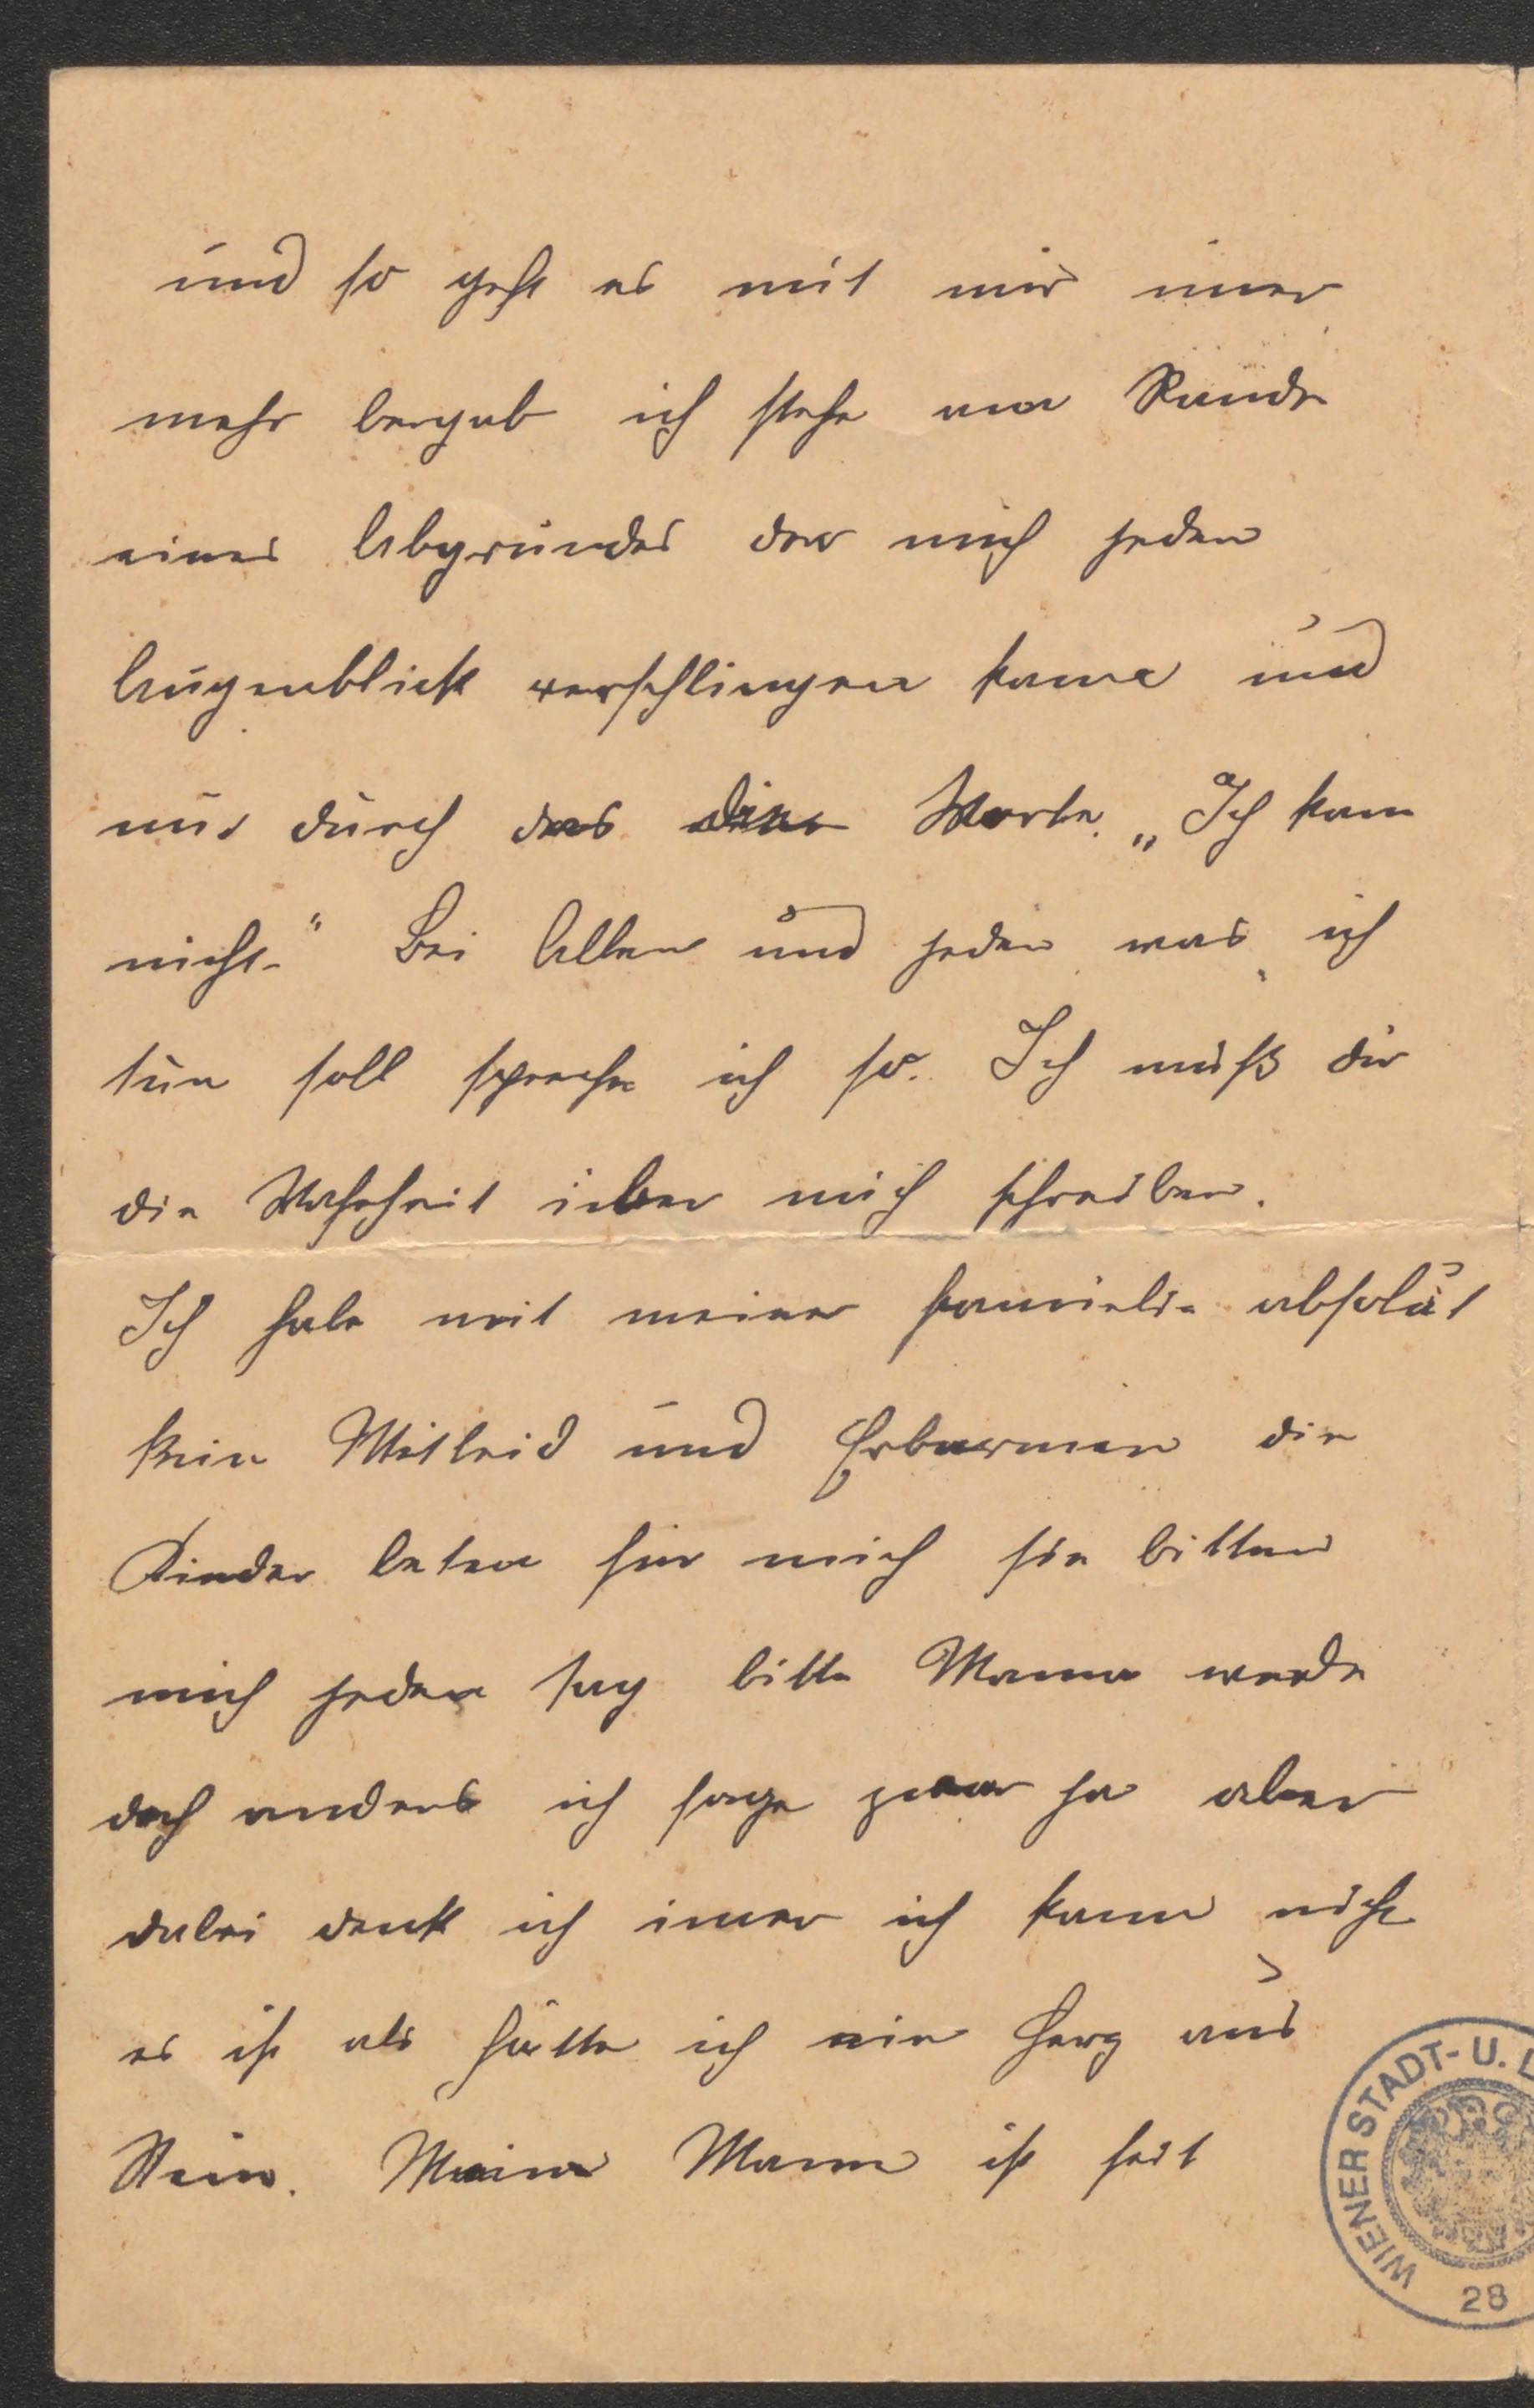 und so geht es mit mir imer
mehr bergab ich stehe am Rande
eines Abgrundes der mich jeden
Augenblick verschlingen kann und
nur durch das Worte. „Ich kan
nicht." Bei Allen und jeden was ich
tun soll spreche ich so. Ich muß dir
die Wahrheit über mich schreiben.
Ich habe mit meiner Famielie absolut
kein Mitleid und Erbarmen die
Kinder beten für mich sie bitten
mich jeden Tag bitte Mama werde
doch anders ich sage zwar ja aber
dabei denk ich imer ich kann nicht
es ist als hätte ich ein Herz aus
Stein. Mein Mann ist seit
WIENER STADT- U. L
28